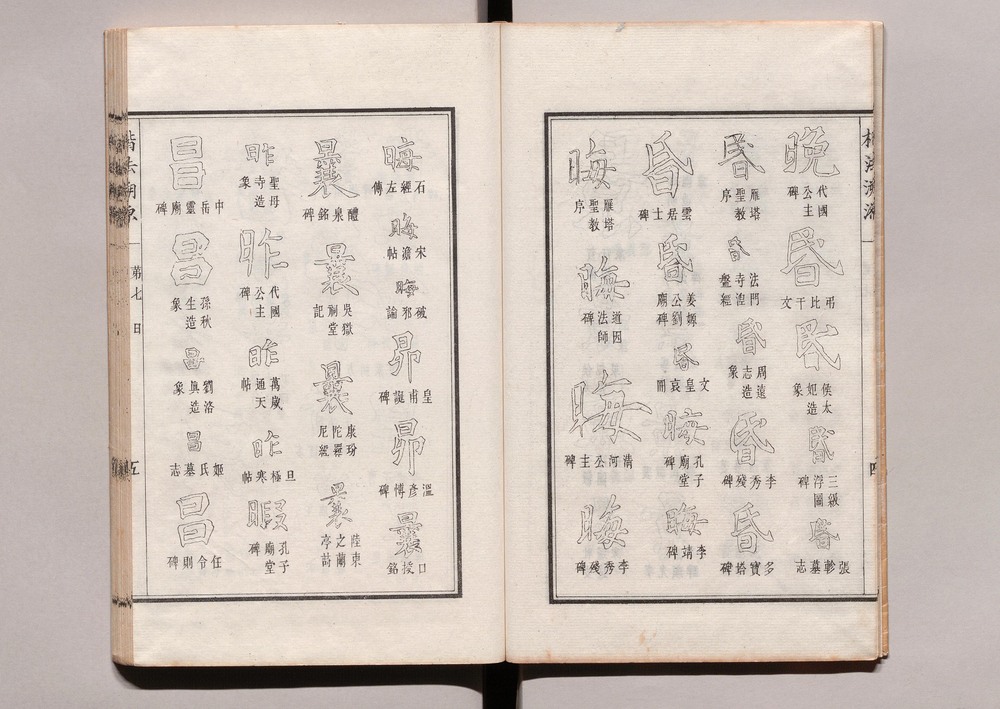 晩 代國公主碑
昏 弔比干文
昏 侯太妃造象
昏 三級浮圖碑
昏 張軫墓志
昏 雁塔聖教序
昏 法門寺湼盤經
昏 周遠志造象
昏 李秀殘碑
昏 多寶塔碑
昏 雲居士碑
昏 姜嫄公劉廟碑
昏 文皇哀冊
晦 孔子廟堂碑
晦 李靖碑
晦 雁塔聖教序
晦 道因法師碑
晦 清河公主碑
晦 李秀殘碑
楷法溯源
第七 日
五
晦 石經左傳
晦 宋澹帖
晦 破邪論
昴 皇甫誕碑
昴 溫彥博碑
曩 口援銘
曩 醴泉銘碑
曩 吳嶽祠堂記
曩 康玢陀羅尼經
曩 陸柬之蘭亭詩
昨 聖母寺造象
昨 代國公主碑
昨 萬歲通天帖
昨 旦極寒帖
暇 孔子廟堂碑
昌 中岳靈廟碑
昌 孫秋生造象
昌 劉洛眞造象
昌 姬氏墓志
昌 任令則碑